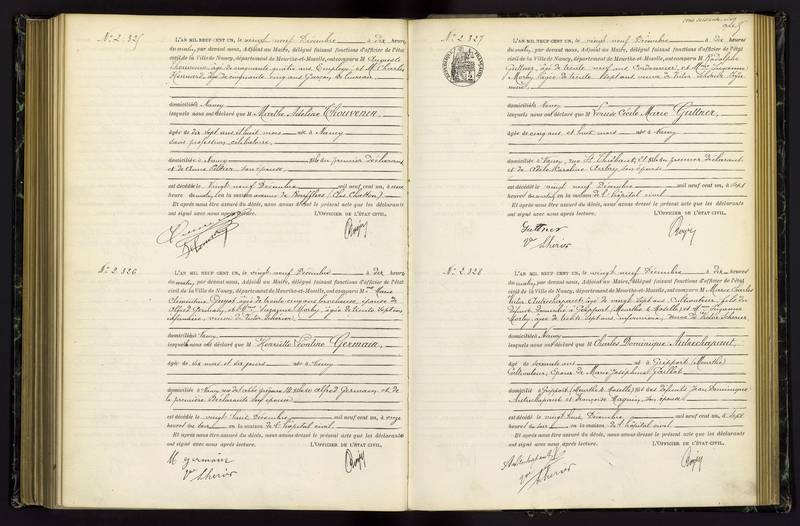 N° 2.325
L'AN MIL NEUF CENT UN, le vingt neuf Décembre à dix heures
du matin, par devant nous, Adjoint au Maire, délégué faisant fonctions d'officier de l'état
civil de la Ville de Nancy, département de Meurthe-et-Moselle, ont comparu M Auguste
Chouvenin, âgé de cinquante quatre ans, Employé, et M. Charles
âgé de cinquante cinq ans Garçon de bureau,
domiciliés à Nancy
lesquels nous ont déclaré que M Marthe Adeline Chouvenin,
âgée de dix sept ans et huit mois née à Nancy
sans profession, célibataire,
domiciliée à Nancy fille du premier Déclarant
et de Anna son épouse
est décédée le vingt neuf Décembre mil neuf cent un, à onze
heures du matin, en la maison avenue de Boufflers
Et après nous être assuré du décès, nous avons dressé le présent acte que les déclarants
ont signé avec nous après lecture. L'OFFICIER DE L'ÉTAT CIVIL,
N° 2.326
L'AN MIL NEUF CENT UN, le vingt neuf Décembre à dix heures
du matin, par devant nous, Adjoint au Maire, délégué faisant fonctions d'officier de l'état
civil de la Ville de Nancy, département de Meurthe-et-Moselle, ont comparu Mme Marie
Clémentine âgée de trente cinq ans brocheuse, épouse de
Alfred et Mme Suzanne Morby, âgée de trente sept ans
infirmière, veuve de Victor Schérier
domiciliés à Nancy
lesquels nous ont déclaré que M Henriette Léontine Germain,
âgée de dix mois et dix jours née à Nancy
domiciliée à Nancy, rue de l'abbé Grégoire fille de Alfred Germain, et de
la première Déclarante son épouse
est décédée le vingt huit Décembre mil neuf cent un, à onze
heures du soir en la maison de l'hôpital civil
Et après nous être assuré du décès, nous avons dressé le présent acte que les déclarants
ont signé avec nous après lecture. L'OFFICIER DE L'ÉTAT CIVIL,
M germain
Vve Schérier
N° 2.327
L'AN MIL NEUF CENT UN, le vingt neuf Décembre à dix heures
du matin, par devant nous, Adjoint au Maire, délégué faisant fonctions d'officier de l'état
civil de la Ville de Nancy, département de Meurthe-et-Moselle, ont comparu M Rodolphe
Guttner, âgé de trente neuf ans Cordonnier, et Mme Suzanne
Morby âgée de trente sept ans veuve de Victor Schérier
domiciliés à Nancy
lesquels nous ont déclaré que M Louise Cécile Marie Guttner,
âgée de cinq ans et huit mois née à Nancy
domiciliée à Nancy, rue St Thiébaut, 21 fille du premier déclarant
et de Adèle Caroline son épouse
est décédée le vingt neuf Décembre mil neuf cent un, à sept
heures du matin en la maison de l'hôpital civil
Et après nous être assuré du décès, nous avons dressé le présent acte que les déclarants
ont signé avec nous après lecture. L'OFFICIER DE L'ÉTAT CIVIL,
Guttner
Vve Schérier
N° 2.328
L'AN MIL NEUF CENT UN, le vingt neuf Décembre à dix heures
du matin, par devant nous, Adjoint au Maire, délégué faisant fonctions d'officier de l'état
civil de la Ville de Nancy, département de Meurthe-et-Moselle, ont comparu M Marie Charles
Victor Autrechapaut, âgé de vingt sept ans Cultivateur, fils du
défunt domicilié à Gripport (Meurthe & Moselle) et Mme Suzanne
Morby âgée de trente sept ans infirmière, veuve de Victor Schérier,
domiciliés à Nancy
lesquels nous ont déclaré que M Charles Dominique Autrechapaut,
âgé de soixante ans né à Gripport (Meurthe)
Cultivateur, époux de Marie Joséphine Gaillot
domicilié à Gripport (Meurthe & Moselle) fils des défunts Jean Dominique
Autrechapaut et Françoise Maguin, son épouse
est décédé le vingt huit Décembre mil neuf cent un, à sept
heures du soir en la maison de l'hôpital civil
Et après nous être assuré du décès, nous avons dressé le présent acte que les déclarants
ont signé avec nous après lecture. L'OFFICIER DE L'ÉTAT CIVIL,
Autrechapaut
Vve
Schérier